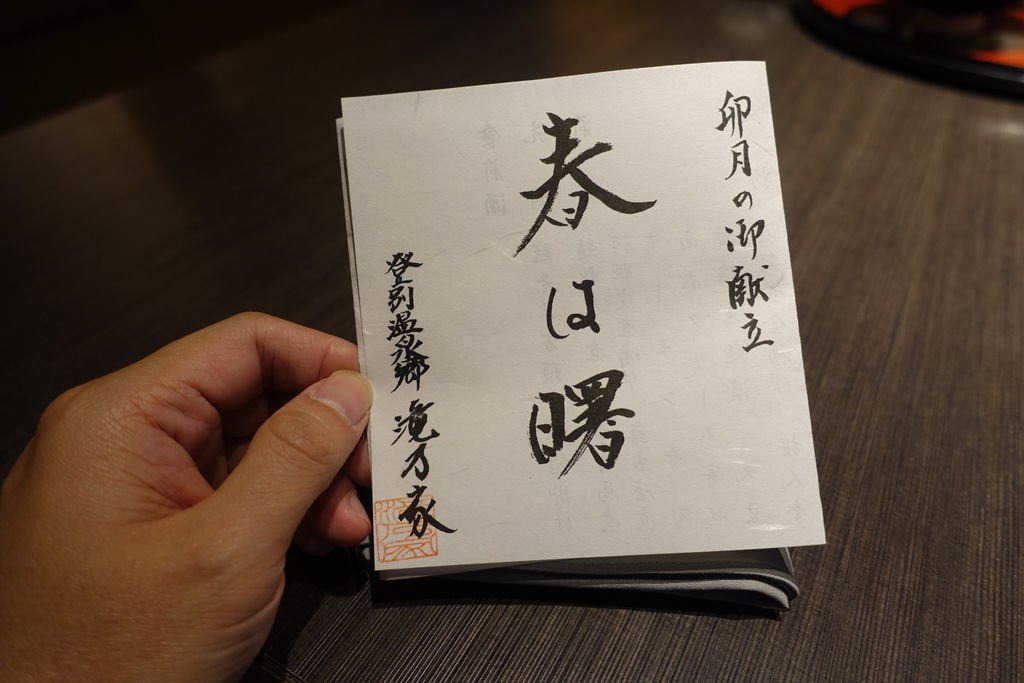 卯月の御献立
春は曙
登別温泉郷 滝乃家